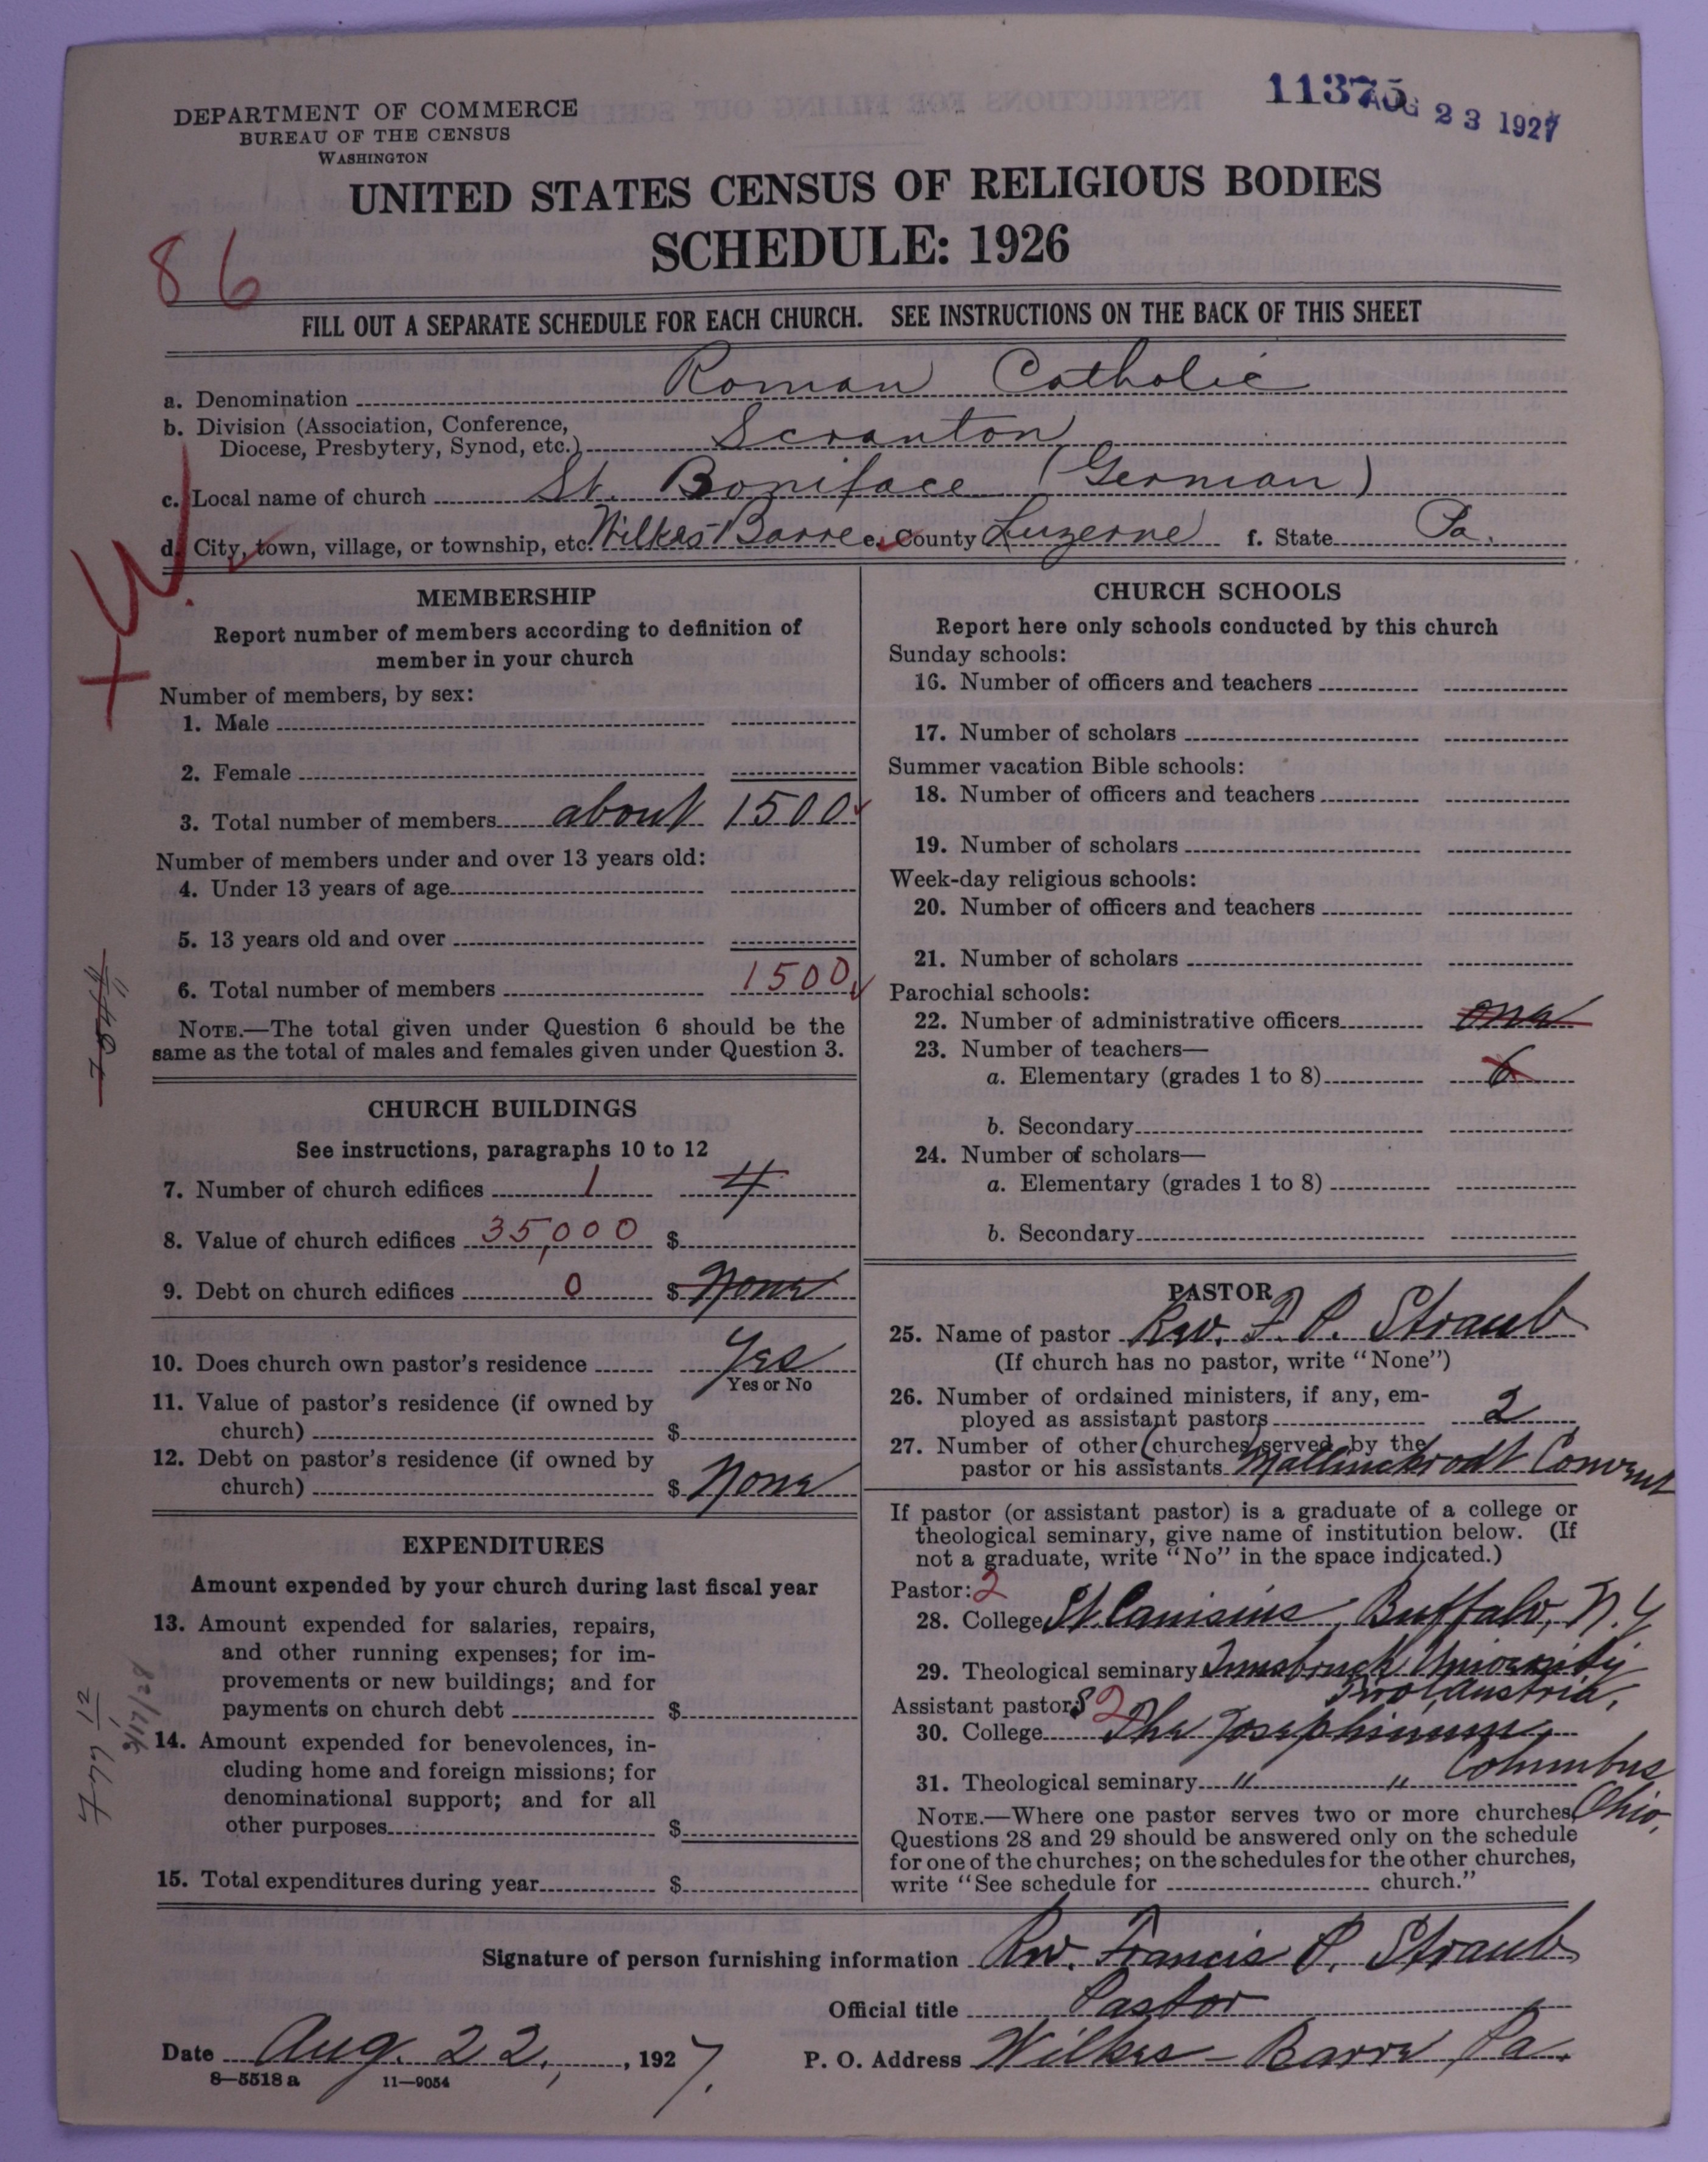 11375
AUG 23 1927
DEPARTMENT OF COMMERCE
BUREAU OF THE CENSUS
WASHINGTON
UNITED STATES CENSUS OF RELIGIOUS BODIES
SCHEDULE: 1926
86
FILL OUT A SEPARATE SCHEDULE FOR EACH CHURCH. SEE INSTRUCTIONS ON THE BACK OF THIS SHEET
a. Denomination Roman Catholic
b. Division (Association, Conference,
Diocese, Presbytery, Synod, etc.) Scranton
c. Local name of church St. Boniface (German)
d. City, town, village, or township, etc. Wilkes-Barre e. County Luzerne f. State Pa.
MEMBERSHIP
Report number of members according to definition of
member in your church
Number of members, by sex:
1. Male
2. Female
3. Total number of members about 1500
Number of members under and over 13 years old:
4. Under 13 years of age
5. 13 years old and over
6. Total number of members 1500
NOTE.—The total given under Question 6 should be the
same as the total of males and females given under Question 3.
CHURCH BUILDINGS
See instructions, paragraphs 10 to 12
7. Number of church edifices 1 4
8. Value of church edifices 35,000 $
9. Debt on church edifices 0 $ None
10. Does church own pastor's residence Yes
Yes or No
11. Value of pastor's residence (if owned by
church) $
12. Debt on pastor's residence (if owned by
church) $ None
EXPENDITURES
Amount expended by your church during last fiscal year
13. Amount expended for salaries, repairs,
and other running expenses; for im-
provements or new buildings; and for
payments on church debt $
14. Amount expended for benevolences, in-
cluding home and foreign missions; for
denominational support; and for all
other purposes $
15. Total expenditures during year $
CHURCH SCHOOLS
Report here only schools conducted by this church
Sunday schools:
16. Number of officers and teachers
17. Number of scholars
Summer vacation Bible schools:
18. Number of officers and teachers
19. Number of scholars
Week-day religious schools:
20. Number of officers and teachers
21. Number of scholars
Parochial schools:
22. Number of administrative officers one
23. Number of teachers—
a. Elementary (grades 1 to 8) 6
b. Secondary
24. Number of scholars—
a. Elementary (grades 1 to 8)
b. Secondary
PASTOR
25. Name of pastor Rev. F. P. Straub
(If church has no pastor, write "None")
26. Number of ordained ministers, if any, em-
ployed as assistant pastors 2
27. Number of other (churches) served by the
pastor or his assistants Mallinckrodt Convent
If pastor (or assistant pastor) is a graduate of a college or
theological seminary, give name of institution below. (If
not a graduate, write "No" in the space indicated.)
Pastor: 2
28. College St. Canisius, Buffalo, N.Y
29. Theological seminary Innsbruck University
Tirol, Austria,
Assistant pastors 2
30. College The Josephinum,
Columbus
31. Theological seminary " "
Ohio,
NOTE.—Where one pastor serves two or more churches,
Questions 28 and 29 should be answered only on the schedule
for one of the churches; on the schedules for the other churches,
write "See schedule for church."
Signature of person furnishing information Rev. Francis P. Straub
Official title Pastor
Date Aug. 22, , 1927. P. O. Address Wilkes-Barre Pa.
8—5518 a 11—9054